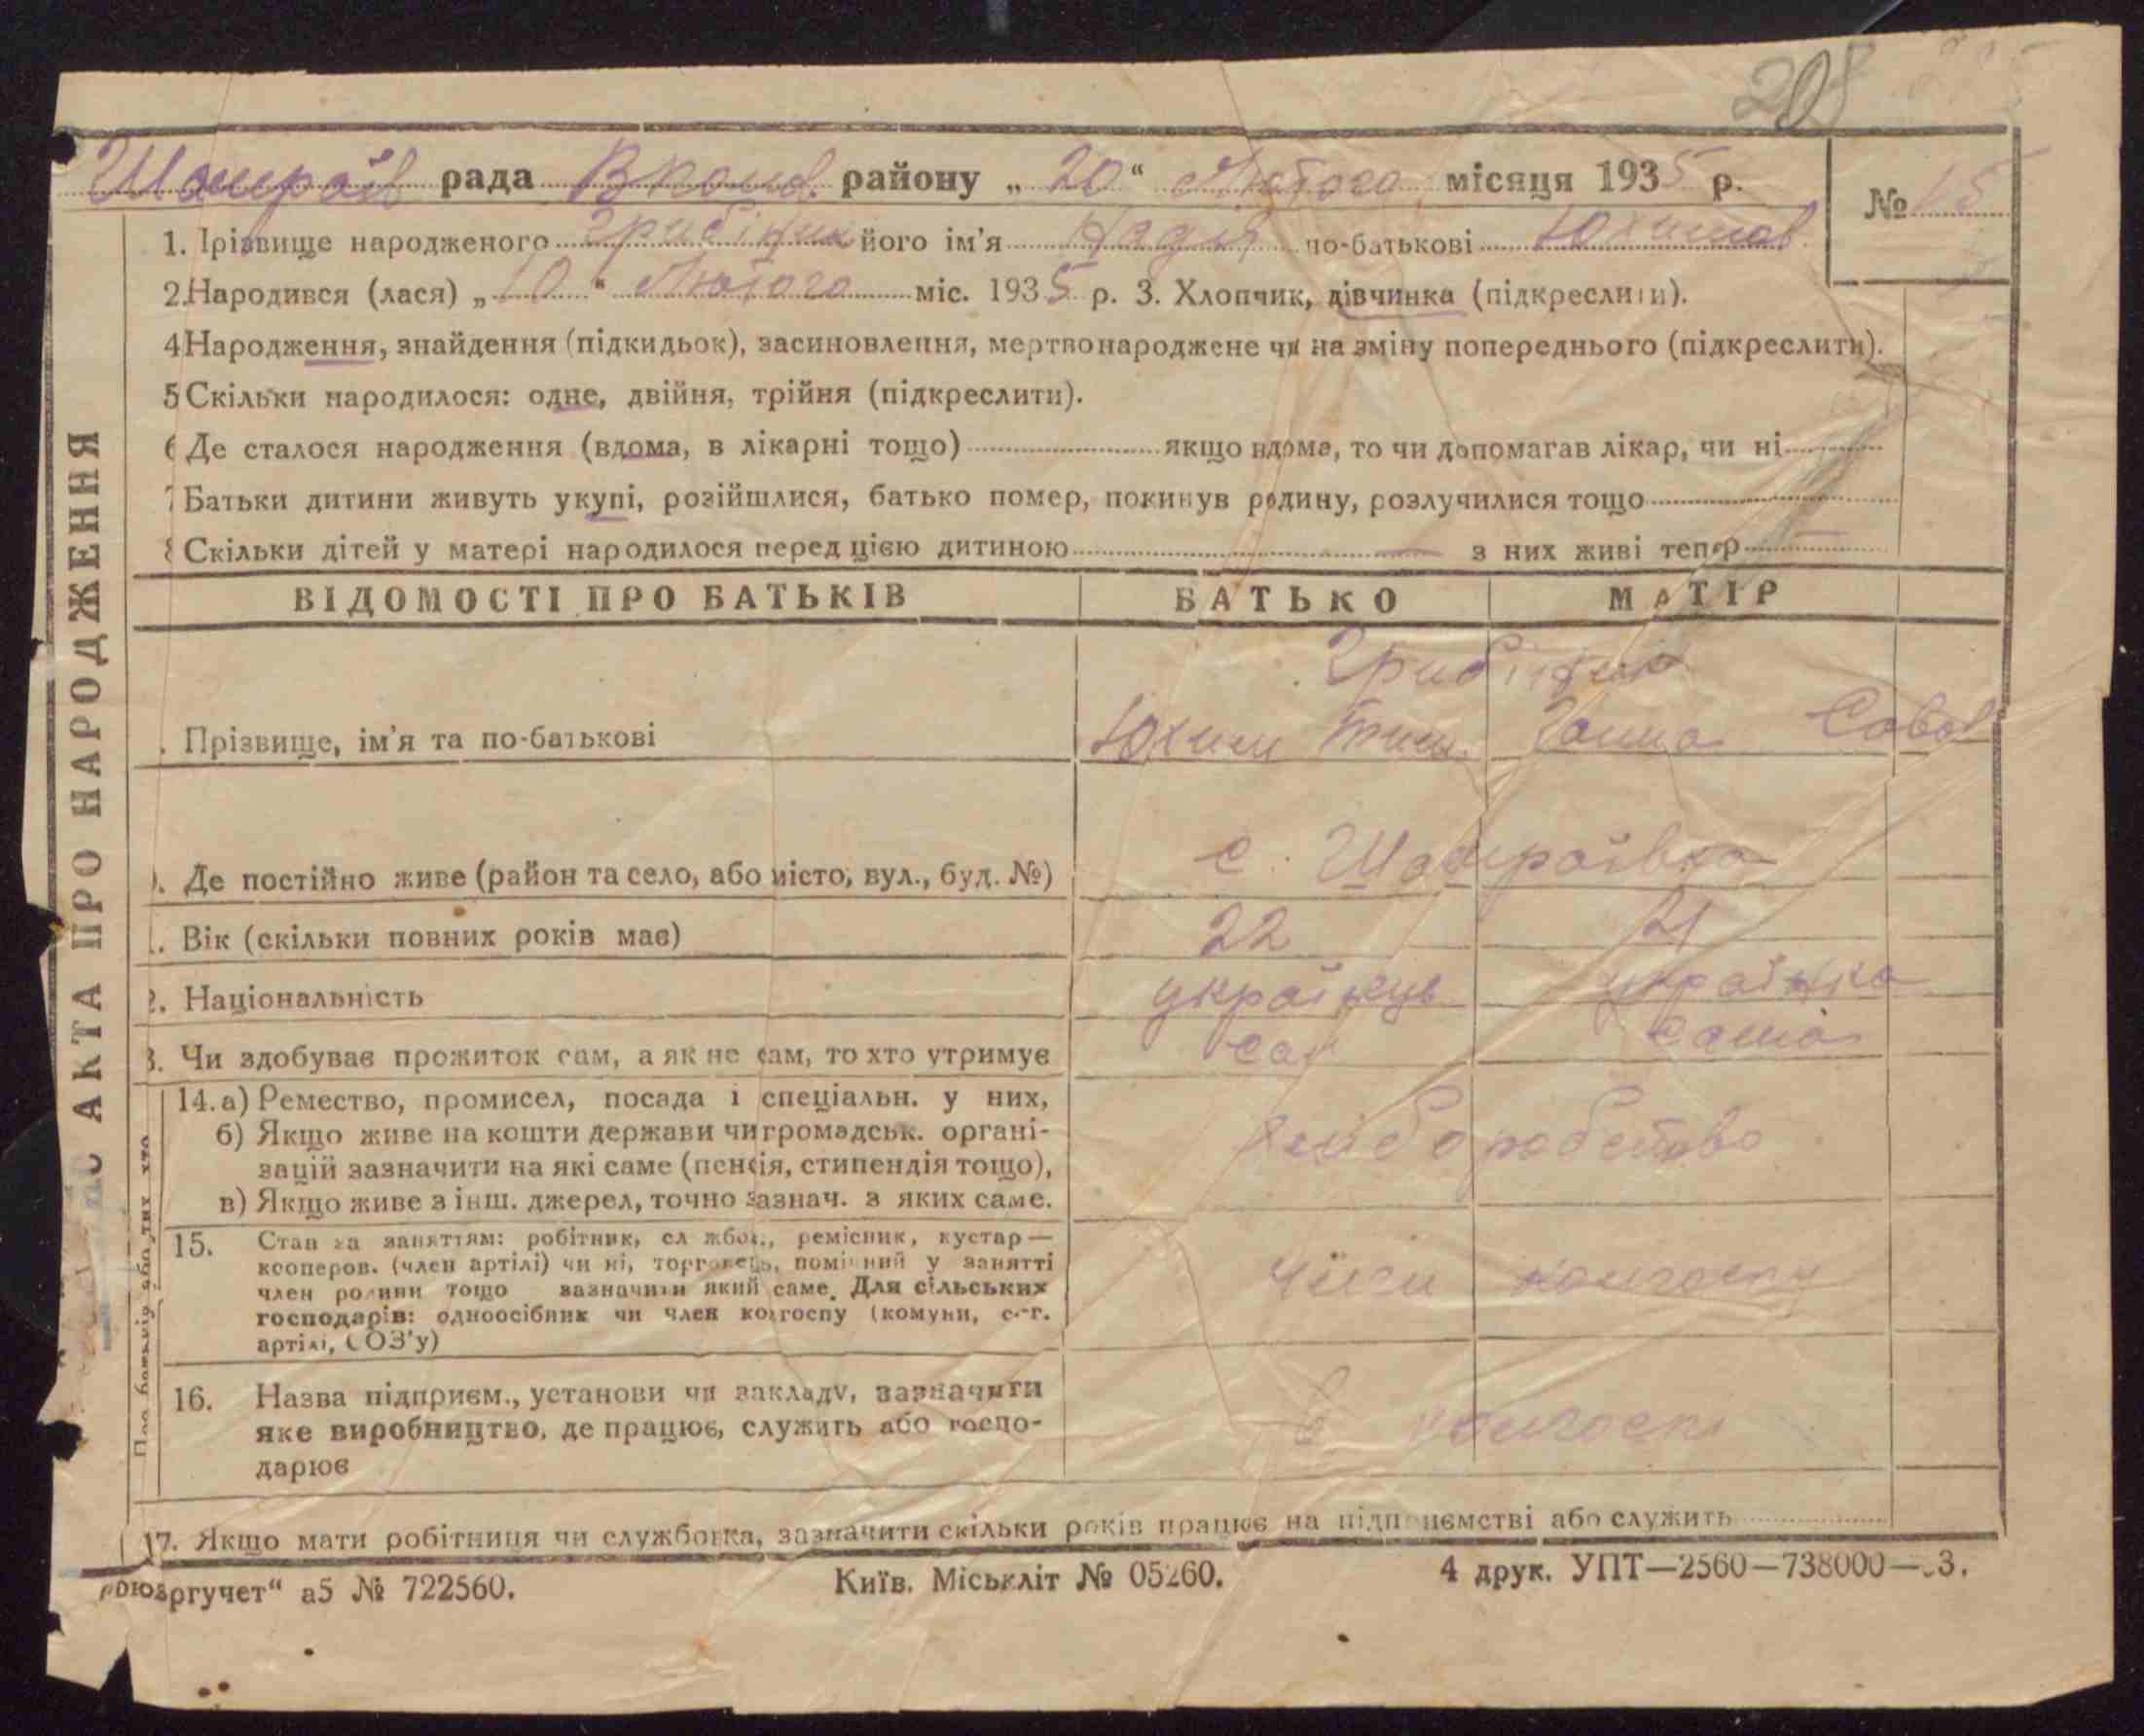 208
Шамраїв рада В Полов. району „ 20 “ Лютого місяця 1935 р.
№ 15
1. Прізвище народженого його ім'я Надія по-батькові Юхимов
2. Народився (лася) „ 10 “ Лютого міс. 1935 р. 3. Хлопчик, дівчинка (підкреслити).
4 Народження, знайдення (підкидьок), засиновлення, мертвонароджене чи на зміну попереднього (підкреслити).
5 Скільки народилося: одне, двійня, трійня (підкреслити).
6 Де сталося народження (вдома, в лікарні тощо) якщо вдома, то чи допомагав лікар, чи ні
7 Батьки дитини живуть укупі, розійшлися, батько помер, покинув родину, розлучилися тощо
8 Скільки дітей у матері народилося перед цією дитиною — з них живі тепер —
ВІДОМОСТІ ПРО БАТЬКІВ БАТЬКО МАТІР
. Прізвище, ім'я та по-батькові Юхим Тим. Ганна Савов
). Де постійно живе (район та село, або місто, вул., буд. №) с. Шамраївка
. Вік (скільки повних років має) 22 21
2. Національність українець українка
3. Чи здобуває прожиток сам, а як не сам, то хто утримує сам сама
14. а) Ремество, промисел, посада і спеціальн. у них,
б) Якщо живе на кошти держави чи громадськ. органі-
зацій зазначити на які саме (пенсія, стипендія тощо),
в) Якщо живе з інш. джерел, точно зазнач. з яких саме.
хліборобство
15. Стан за заняттям: робітник, службов., ремісник, кустар —
кооперов. (член артілі) чи ні, торговець, помічний у занятті
член родини тощо зазначити який саме. Для сільських
господарів: одноосібник чи член колгоспу (комуни, с.-г.
артілі, СОЗ'у)
член колгоспу
16. Назва підприєм., установи чи закладу, зазначити
яке виробництво, де працює, служить або госпо-
дарює
в колгоспі
17. Якщо мати робітниця чи службовка, зазначити скільки років працює на підприємстві або служить
„Союзоргучет“ а5 № 722560. Київ. Міськліт № 05260. 4 друк. УПТ—2560—738000—33.
АКТА ПРО НАРОДЖЕННЯ
Про батьків або тих хто